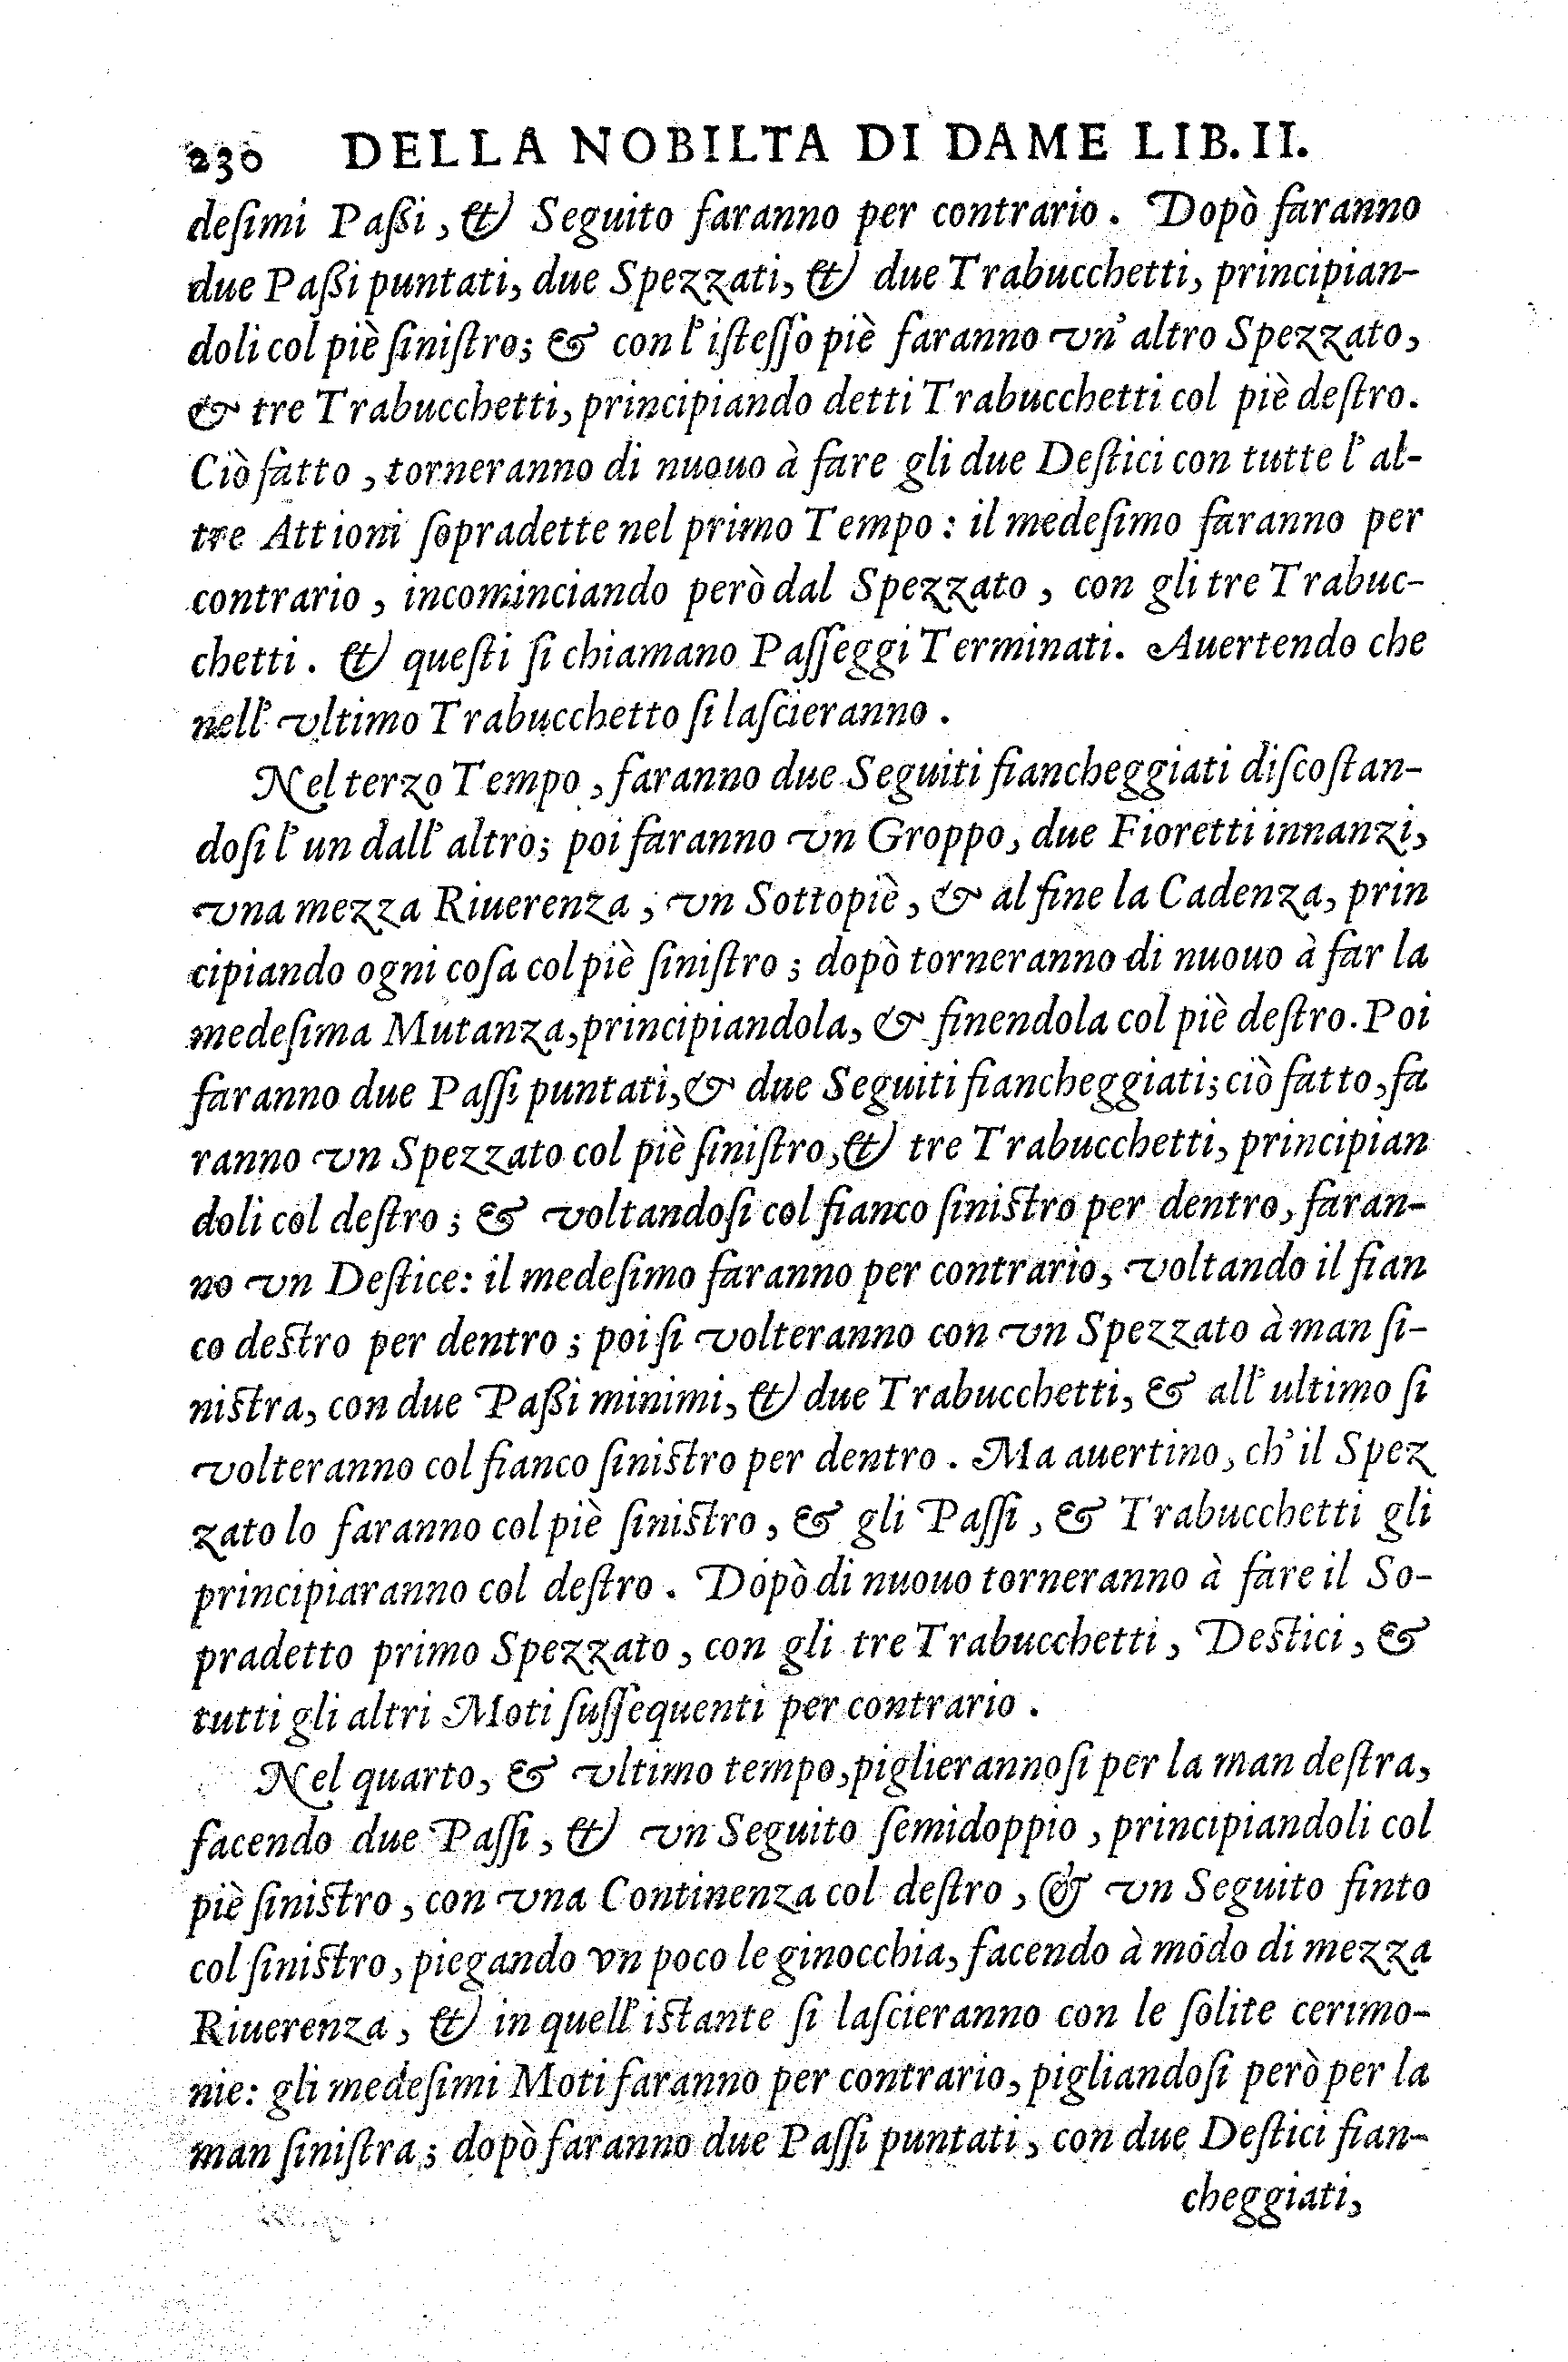 230 DELLA NOBILTA DI DAME LIB. II.
deſimi Paßi, & Seguito faranno per contrario. Dopò faranno
due Paßi puntati, due Spezzati, & due Trabucchetti, principian-
doli col piè ſiniſtro; & con l'iſteſſo piè faranno vn' altro Spezzato,
& tre Trabucchetti, principiando detti Trabucchetti col piè deſtro.
Ciò fatto, torneranno di nuouo à fare gli due Deſtici con tutte l' al-
tre Attioni ſopradette nel primo Tempo: il medeſimo faranno per
contrario, incominciando però dal Spezzato, con gli tre Trabuc-
chetti. & queſti ſi chiamano Paſſeggi Terminati. Auertendo che
nell' vltimo Trabucchetto ſi laſcieranno.
Nel terzo Tempo, faranno due Seguiti fiancheggiati diſcoſtan-
doſi l' un dall' altro; poi faranno vn Groppo, due Fioretti innanzi,
vna mezza Riuerenza, vn Sottopiè, & al fine la Cadenza, prin
cipiando ogni coſa col piè ſiniſtro; dopò torneranno di nuouo à far la
medeſima Mutanza, principiandola, & finendola col piè deſtro. Poi
faranno due Paſſi puntati, & due Seguiti fiancheggiati; ciò fatto, fa
ranno vn Spezzato col piè ſiniſtro, & tre Trabucchetti, principian
doli col deſtro; & voltandoſi col fianco ſiniſtro per dentro, faran-
no vn Deſtice: il medeſimo faranno per contrario, voltando il fian
co deſtro per dentro; poi ſi volteranno con vn Spezzato à man ſi-
niſtra, con due Paßi minimi, & due Trabucchetti, & all' ultimo ſi
volteranno col fianco ſiniſtro per dentro. Ma auertino, ch' il Spez
zato lo faranno col piè ſiniſtro, & gli Paſſi, & Trabucchetti gli
principiaranno col deſtro. Dopò di nuouo torneranno à fare il So-
pradetto primo Spezzato, con gli tre Trabucchetti, Deſtici, &
tutti gli altri Moti ſuſſequenti per contrario.
Nel quarto, & vltimo tempo, piglierannoſi per la man deſtra,
facendo due Paſſi, & vn Seguito ſemidoppio, principiandoli col
piè ſiniſtro, con vna Continenza col deſtro, & vn Seguito finto
col ſiniſtro, piegando vn poco le ginocchia, facendo à módo di mezza
Riuerenza, & in quell' iſtante ſi laſcieranno con le ſolite cerimo-
nie: gli medeſimi Moti faranno per contrario, pigliandoſi però per la
man ſiniſtra; dopò faranno due Paſſi puntati, con due Deſtici fian-
cheggiati,